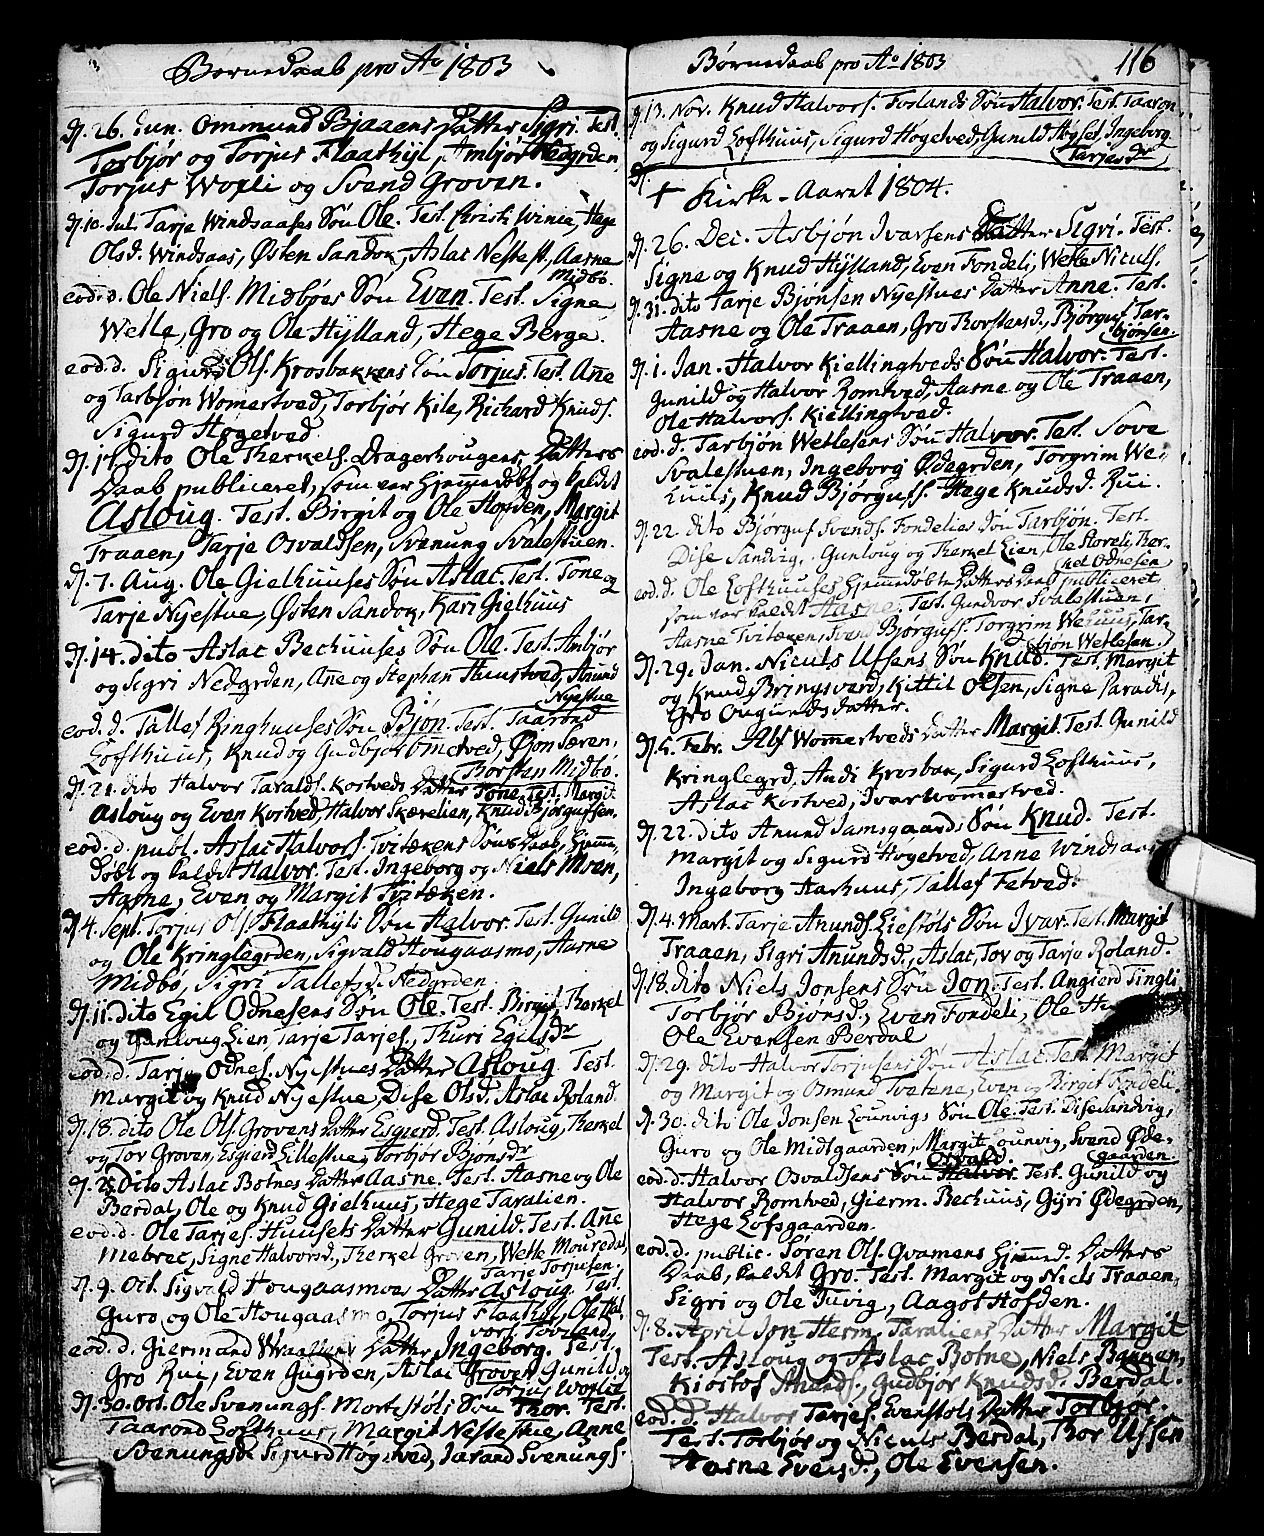 Børnedaab pro Ao 1803
D. 26. Jun. Ommund Bjaaens Datter Sigri. Test.
Torbjør og Torjus Flaathyl, Ambjør Nedgrden,
Torjus Woxli og Svend Groven.
D. 10. Jul. Tarje Windsaases Søn Ole. Test. Kristi Winie, Hege
Olsd. Windsaas, Østen Sandok, Aslac Nestest, Aasne
Midbø.
eod. d. Ole Niels. Midbøes Søn Even. Test. Signe
Wetle, Gro og Ole Hylland, Hege Berge.
eod. d. Sigurd Ols. Krosbakkens Søn Torjus. Test. Ane
og Tarbjøn Womertved, Torbjør Kile, Richard Knuds.
Sigurd Høgetved
D. 17. dito Ole Therkels. Dragerhougens Datters
Daab publiceret, som var Hjemmedøbt og kaldet
Asloug. Test. Birgit og Ole Hofden, Margit
Traaen, Tarje Osvaldsen, Svenung Svalestuen.
D. 7. Aug. Ole Gielhuuses Søn Aslac. Test. Tone og
Tarje Nyestue, Østen Sandok, Kari Gielhuus
D. 14. dito Aslac Bechuuses Søn Ole. Test. Ambjør
og Sigri Nedgrden, Ane og Stephan Tuustved, Anund
Nyestue
eod. d. Tallef Ringhuuses Søn Bjøn. Test. Taarand
Lofthuus, Knud og Gudbjør Omtved, Øjon Særen,
Torsten Midbø.
D. 21. dito Halvor Taralds. Kostveds Datter Tone. Test. Margit
Asloug og Even Kostved, Halvor Skærelien, Knud Bjørgufsen.
eod. d. publ. Aslac Halvors. Tvitækens Søns Daab, Hjemme-
døbt og kaldet Halvor. Test. Ingeborg og Niels Moen,
Aasne, Even og Margit Tvitæken.
D. 4. Sept. Torjus Ols. Flaathyls Søn Halvor. Test. Gunild
og Ole Kringlegrden, Sigvald Hougaasmo, Aasne
Midbø, Sigri Tallefsd. Nedgrden
D. 11. dito Egil Odnesens Søn Ole. Test. Birgit, Therkel
og Gunloug Lien, Tarje Tarjes., Thuri Egilsdr
eod. d. Tarje Odnes. Nyestues Datter Asloug. Test.
Margit og Knud Nyestue, Dise Olsd. Aslac Roland.
D. 18. dito Ole Ols. Grovens Datter Esgierd. Test. Asloug, Therkel
og Tov Groven, Esgierd Lillestue, Torbjør Bjønsdr
D. 25. Dito Aslac Botnes Datter Aasne. Test. Aasne og Ole
Berdal, Ole og Knud Gielhuus, Hege Taralien.
eod. d. Ole Tarjes. Huusets Datter Gunild. Test. Ane
Mebrec, Signe Halvorsd., Therkel Groven, Wetle Mouredal,
Tarje Torjusen.
D. 9. Oct. Sigvald Hougaasmoes Datter Asloug. Test.
Guro og Ole Hougaasmo, Torjus Flaathyl, Ole Hal-
vors. Toveland
eod. d. Giermund Wraaliens Datter Ingeborg. Test.
Gro Rui, Even Gugrden, Aslac Groven, Gunild og
Torjus Woxlie
D. 30. Oct. Ole Svenungs. Mortestøls Søn Thor. Test.
Taarand Lofthuus, Margit Nestestue, Anne
Svenungsdr Sigurd Høgetved, Jarand Svenungs.
Børnedaab pro Ao 1803
116
D. 13. Nov. Knud Halvors. Foslands Søn Halvor. Test. Taaron
og Sigurd Lofthuus, Sigurd Høgetved, Gunild Høyset, Ingeborg
Tarjesdr
D.
+ Kirke-Aaret 1804.
D. 26. Dec. Asbjøn Ivarsens Datter Sigri. Test.
Signe og Knud Hylland, Even Fondeli, Wetle Niculs.
D. 31. dito Tarje Bjønsen Nyestues Datter Anne. Test.
Aasne og Ole Traaen, Gro Thorstensd., Bjørguf Tar-
bjønsen
D. 1. Jan. Halvor Kiellingtveds Søn Halvor. Test.
Gunild og Halvor Romtved, Aasne og Ole Traaen,
Ole Halvors. Kiellingtved.
eod. d. Tarbjøn Wetlesens Søn Halvor. Test. Sove
Svalestuen, Ingeborg Ødegrden, Torgrim We-
huus, Knud Bjørgufs. Hege Knudsd. Rui.
D. 22. dito Bjørguf Svends. Fondelies Søn Tarbjøn. Test.
Dise Sandvig, Gunloug og Therkel Lien, Ole Storeli, Ber-
Odnesen
eod. d. Ole Lofthuuses Hjemmedøbte Datters Daab publiceret
som var kaldet Aasne. Test. Gundvor Svalestuen,
Aasne Tvitæken, Svend Bjørgufs. Torgrim Wehuus, Tar-
bjøn Wetlesen.
D. 29. Jan. Niculs Ufsens Søn Knud. Test. Margit
og Knud Bringsverd, Kittil Olsen, Signe Paradis,
Gro Ougundsdatter.
D. 5. Febr. Alf Womertveds Datter Margit. Test. Gunild
Kringlegrd, Andi Krosbak, Sigurd Lofthuus,
Aslac Kostved, Ivar Womertved.
D. 22. dito Anund Jamsgaards Søn Knud. Test.
Margit og Sigurd Høgetved, Anne Windsaas
Ingeborg Aarhuus, Tallef Fetved.
D. 4. Mart. Tarje Anunds. Liestøls Søn Ivar. Test. Margit
Traaen, Sigri Anundsd., Aslac, Tov og Tarje Roland.
D. 18. dito Niels Jonsens Søn Jon. Test. Angierd Tingli
Torbjør Bjønsd., Even Fondeli, Ole
Ole Evensen Berdal
D. 29. dito Halvor Torjusens Søn Aslac. Test. Margit
og Margit og Osmund Tvetene, Even og Birgit Fondeli.
D. 30. dito Ole Jonsen Lounvigs Søn Ole. Test. Dise Sandvig,
Guro og Ole Midtgaarden, Margit Lounvig, Svend Øde-
gaarden.
eod. d. Halvor Osvaldsens Søn Osvald. Halvor. Test. Gunild og
Halvor Romtved, Gierm. Bechuus, Gyri Ødegrden,
Hege Lofsgaarden.
eod. d. public. Søren Ols. Qvamens Hjemmd. Datters
Daab, kaldet Gro. Test. Margit og Niels Traaen,
Sigri og Ole Tuvig, Aagot Hofden.
D. 8. April Jon Herm. Taraliens Datter Margit
Test. Asloug og Aslac Botne, Niels Bakken,
Kiøstof Anunds., Gudbjør Knudsd. Berdal.
eod. d. Halvor Tarjes. Evenstøls Datter Torbjør.
Test. Torbjør og Niculs Berdal, Thor Ufsen
Aasne Evensd., Ole Evensen.